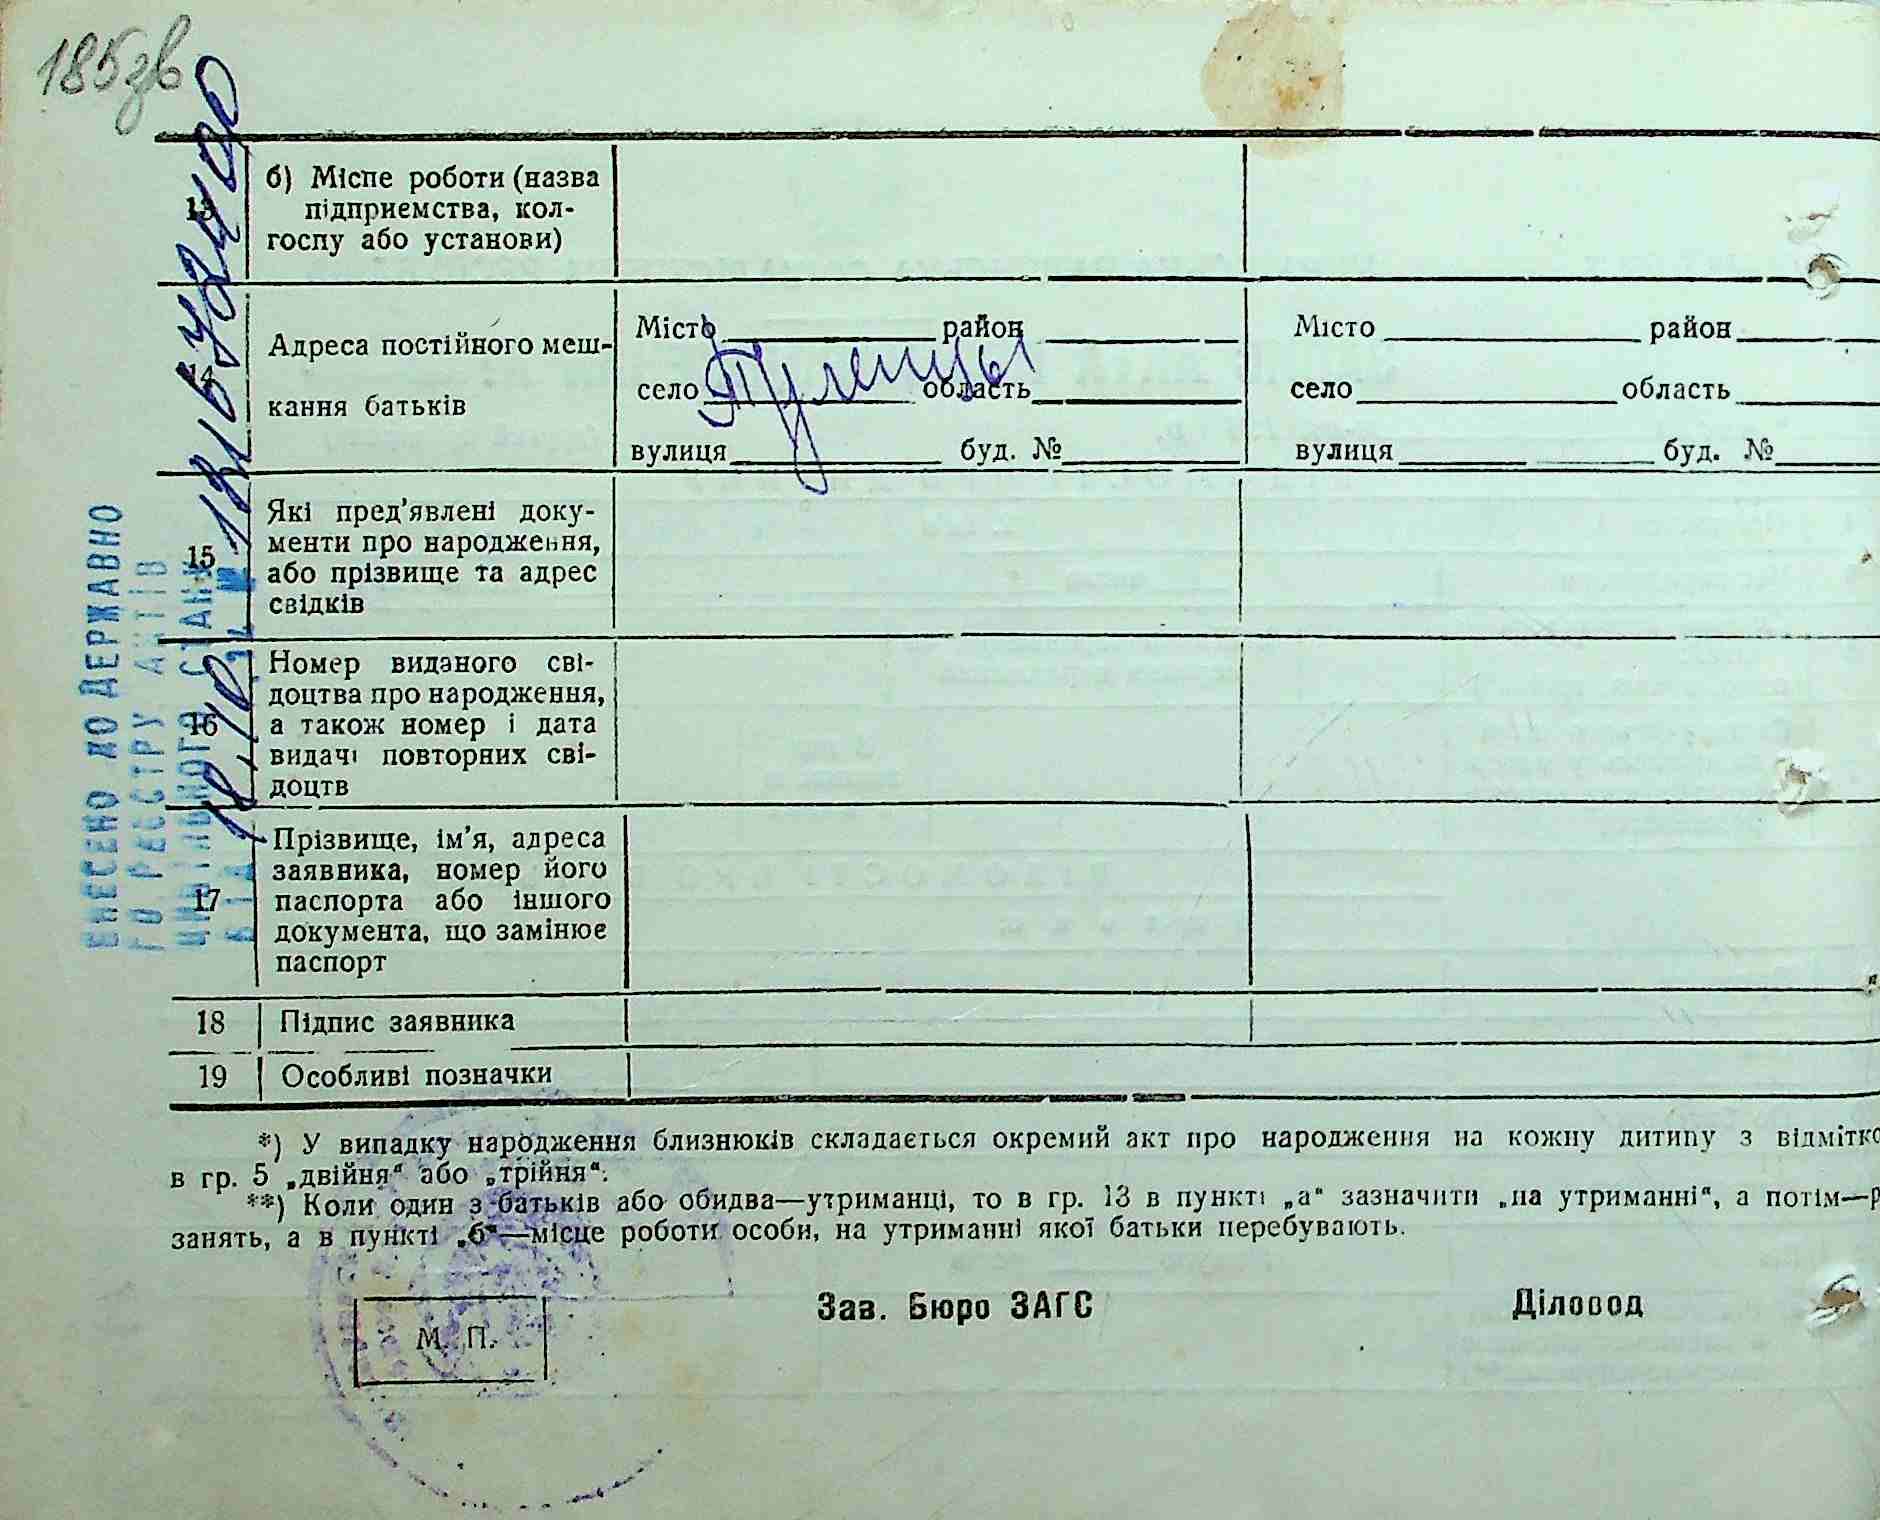 185зв
13
б) Місце роботи (назва
підприємства, кол-
госпу або установи)
14
Адреса постійного меш-
кання батьків
Місто район
село Туленцы область
вулиця буд. №
Місто район
село область
вулиця буд. №
15
Які пред’явлені доку-
менти про народження,
або прізвище та адрес
свідків
16
Номер виданого сві-
доцтва про народження,
а також номер і дата
видачі повторних сві-
доцтв
17
Прізвище, ім’я, адреса
заявника, номер його
паспорта або іншого
документа, що замінює
паспорт
18 Підпис заявника
19 Особливі позначки
ВНЕСЕНО ДО ДЕРЖАВНО
ГО РЕЄСТРУ АКТІВ
ЦИВІЛЬНОГО СТАНУ
ВІД 18.10 №
*) У випадку народження близнюків складається окремий акт про народження на кожну дитину з відмітко
в гр. 5 „двійня“ або „трійня“.
**) Коли один з батьків або обидва—утриманці, то в гр. 13 в пункті „а“ зазначити „на утриманні“, а потім—р
занять, а в пункті „б“—місце роботи особи, на утриманні якої батьки перебувають.
Зав. Бюро ЗАГС
Діловод
М. П.